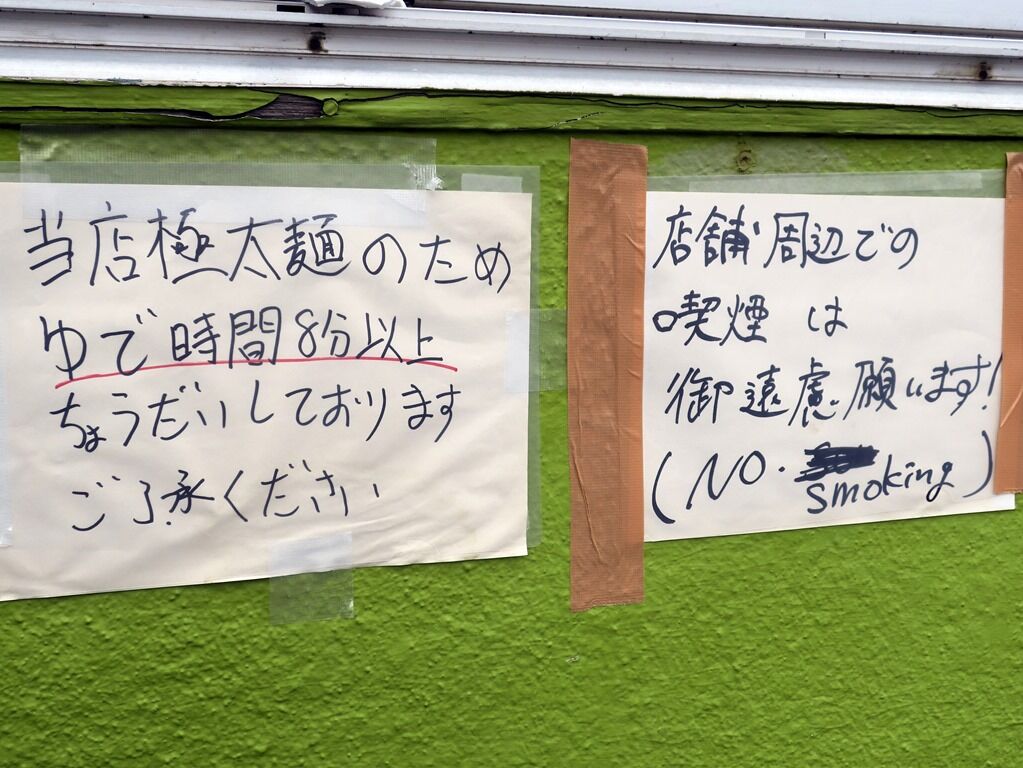 当店極太麺のため
ゆで時間8分以上
ちょうだいしております
ご了承ください
店舗周辺での
喫煙は
御遠慮願います!
(NO. smoking)